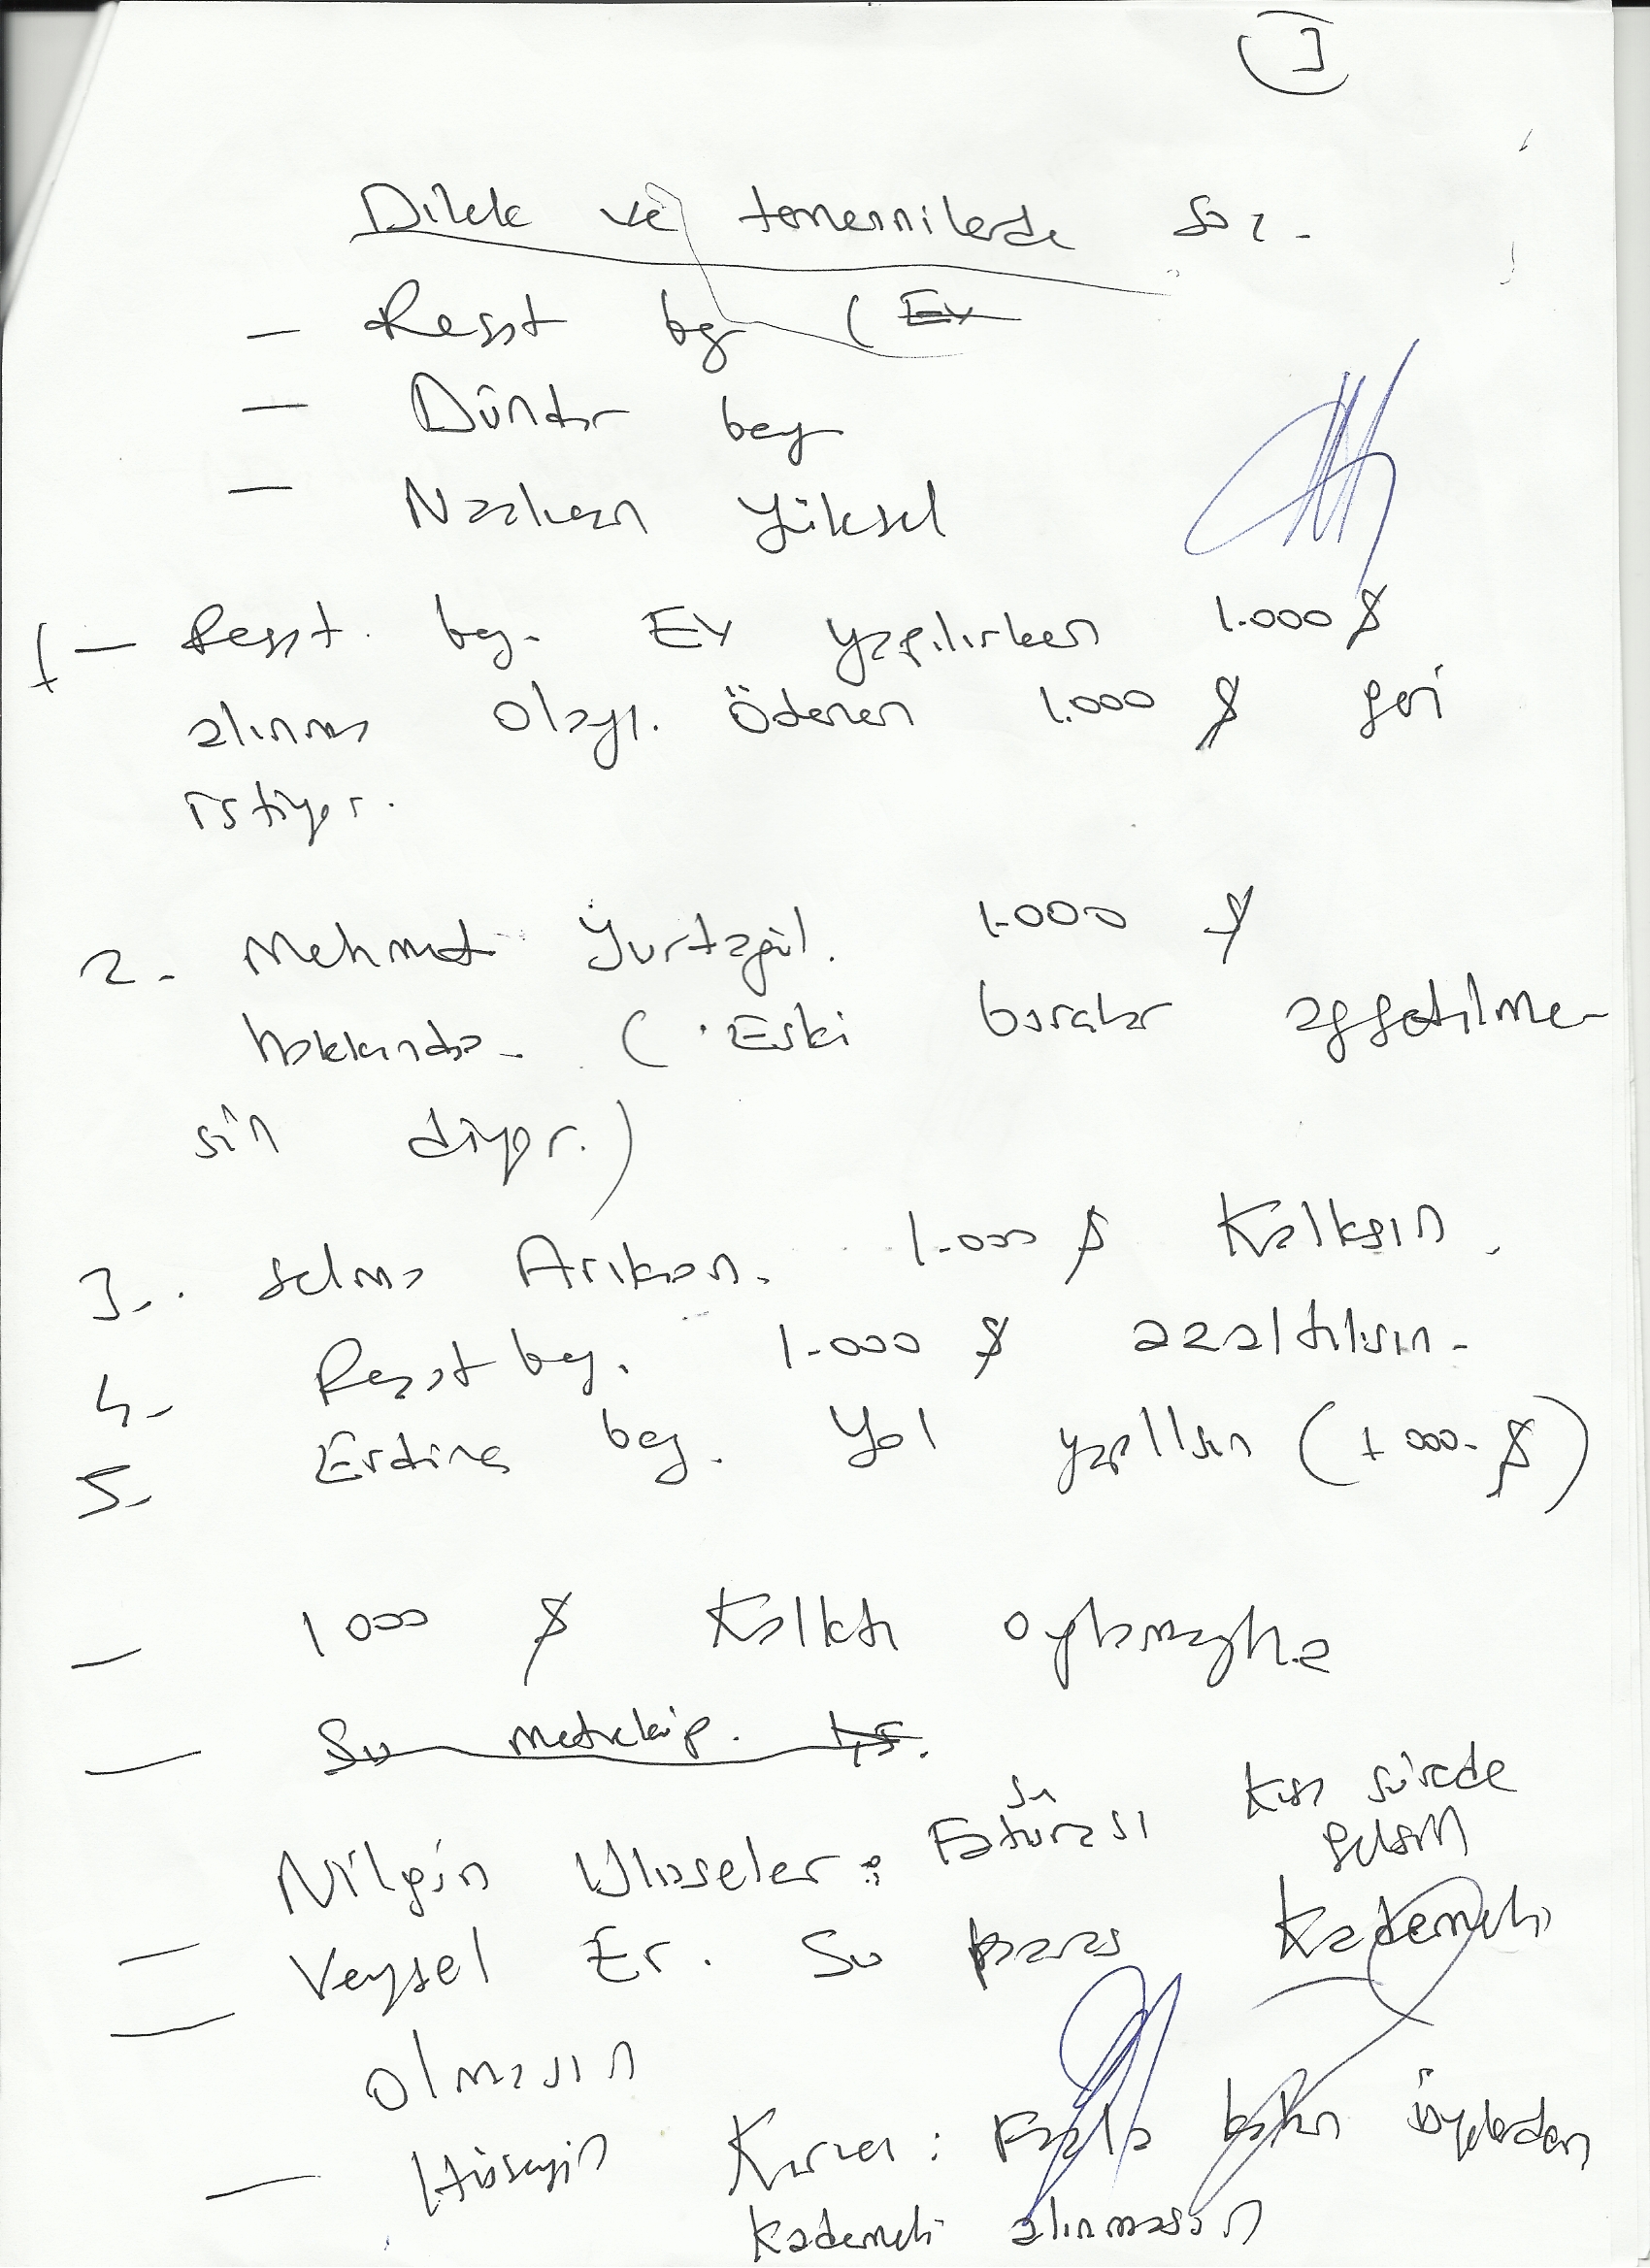 1
Dilek ve temennilerde söz.
- Reşat bey (Ev
- Dündar bey
- Nazkan Yüksel
1- Reşat bey. Ev yapılırken 1.000 $
alınma olayı. Ödenen 1.000 $ geri
istiyor.
2- Mehmet Yurtagül. 1.000 $
hakkında. (Eski borçlar affetilme-
sin diyor.)
3- Selma Arıkan. 1.000 $ Kalksın.
4- Reşat bey. 1.000 $ azaltılsın.
5- Erdinç bey. Yol yapılsın (1 000. $)
- 1 000 $ Kalktı oylamayla
- Su metreküp. 1,5.
Nilgün : su Faturası Kısa sürede
gelsin
- Veysel Er. Su parası Kademeli
- olmasın
- Hüseyin : Fazla üyelerden
Kademeli alınmasın